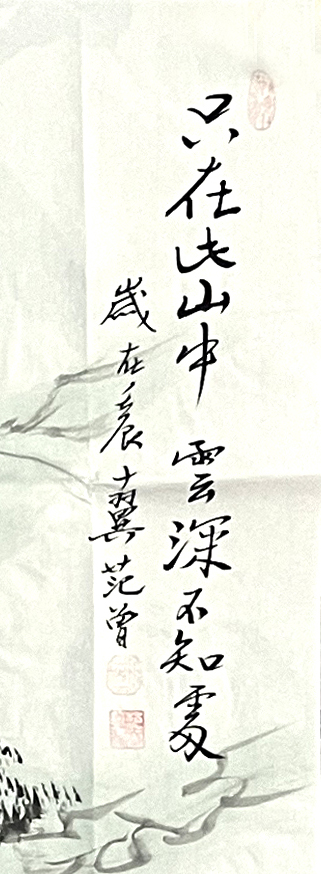 只在此山中 雲深不知處
歲在辰十翼范曾